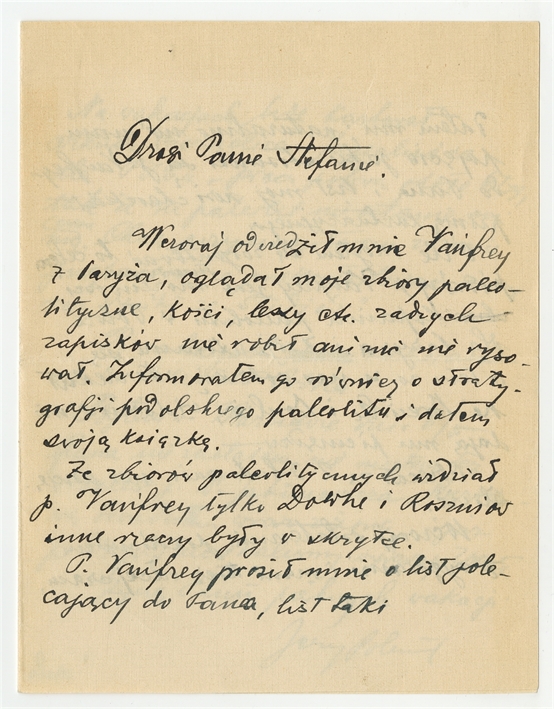 Drogi Panie Stefanie.
Wczoraj odwiedził mnie Vaufrey
z Paryża, oglądał moje zbiory paleo-
lityczne, kości, lessy etc. żadnych
zapisków nie robił ani nic nie ryso-
wał. Informowałem go również o straty-
grafji podolskiego paleolitu i dałem
swoją książkę.
Ze zbiorów paleolitycznych widział
p. Vaufrey tylko i
inne rzeczy były w skrytce.
P. Vaufrey prosił mnie o list pole-
cający do Pana, list taki